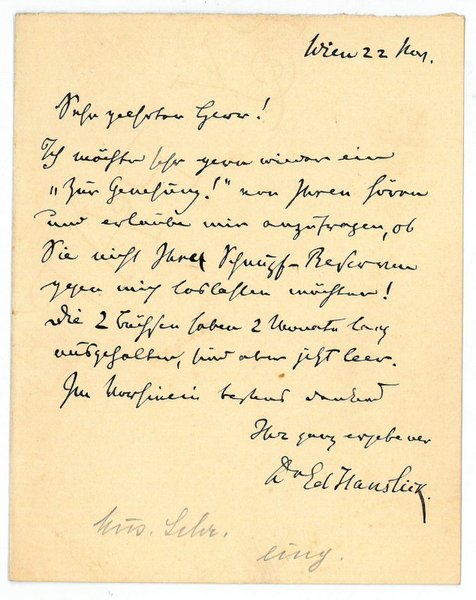 Wien 22 Nov.
Sehr geehrter Herr!
Ich möchte sehr gern wieder ein
„Zur Genesung!" von Ihnen hören
und erlaube mir anzufragen, ob
Sie nicht Ihre Schnupf-Reserven
gegen mich loslassen möchten!
Die 2 Büchsen haben 2 Monate lang
ausgehalten, sind aber jetzt leer.
Im Vorhinein bestens dankend
Ihr ganz ergebener
Dr Ed Hanslick.
Mus. Schr.
eing.